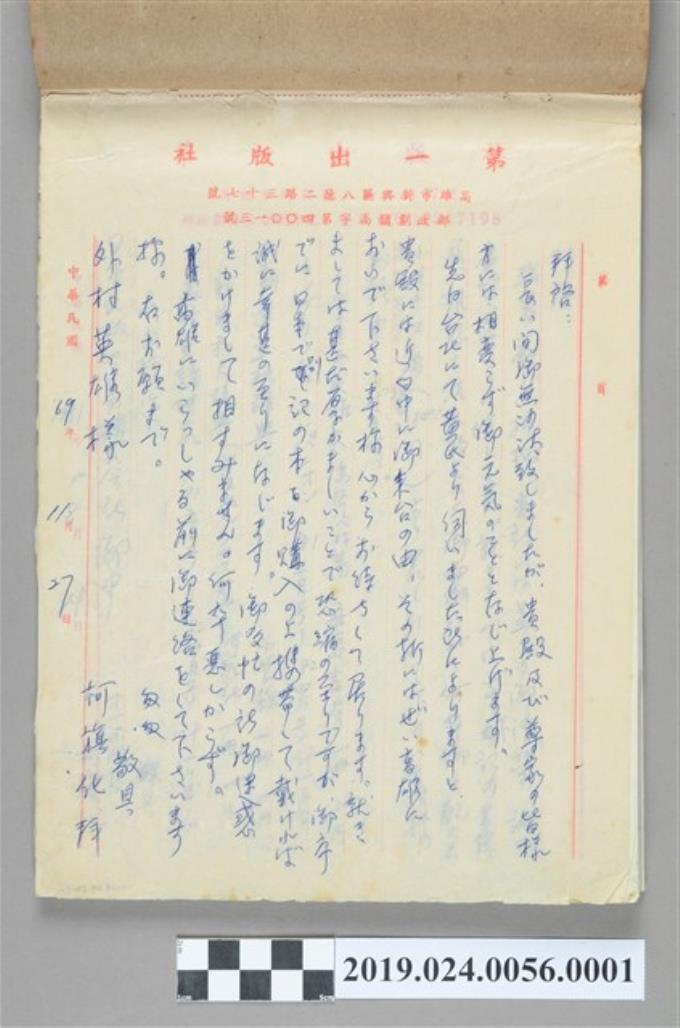 第一出版社
高雄市新興區八德二路三十七號
郵政劃撥高字第四〇〇一三號
7198
第 頁
拝啓:
長い間御無沙汰致しましたが、貴殿及び尊家の皆様
方には相変らず御元気のことと存じ上げます。
先日台北にて黄氏より伺いました所によりますと、
貴殿には近日中に御来台の由、その折にはぜひ高雄に
おいで下さいます様心からお待ちして居ります。就き
ましては甚だ厚かましいことで恐縮の至りですが、御序
でに日本で記の本を御購入の上携帯して戴ければ
誠に幸甚の至りに存じます。御多忙の所御迷惑
をかけまして相すみません。何卒悪しからず。
高雄にいらっしゃる前に御連絡をして下さいます
様。右お願まで。
匆匆
敬具
外村英雄様
柯旗化拝
中華民國 69年 11月 27日
2019.024.0056.0001